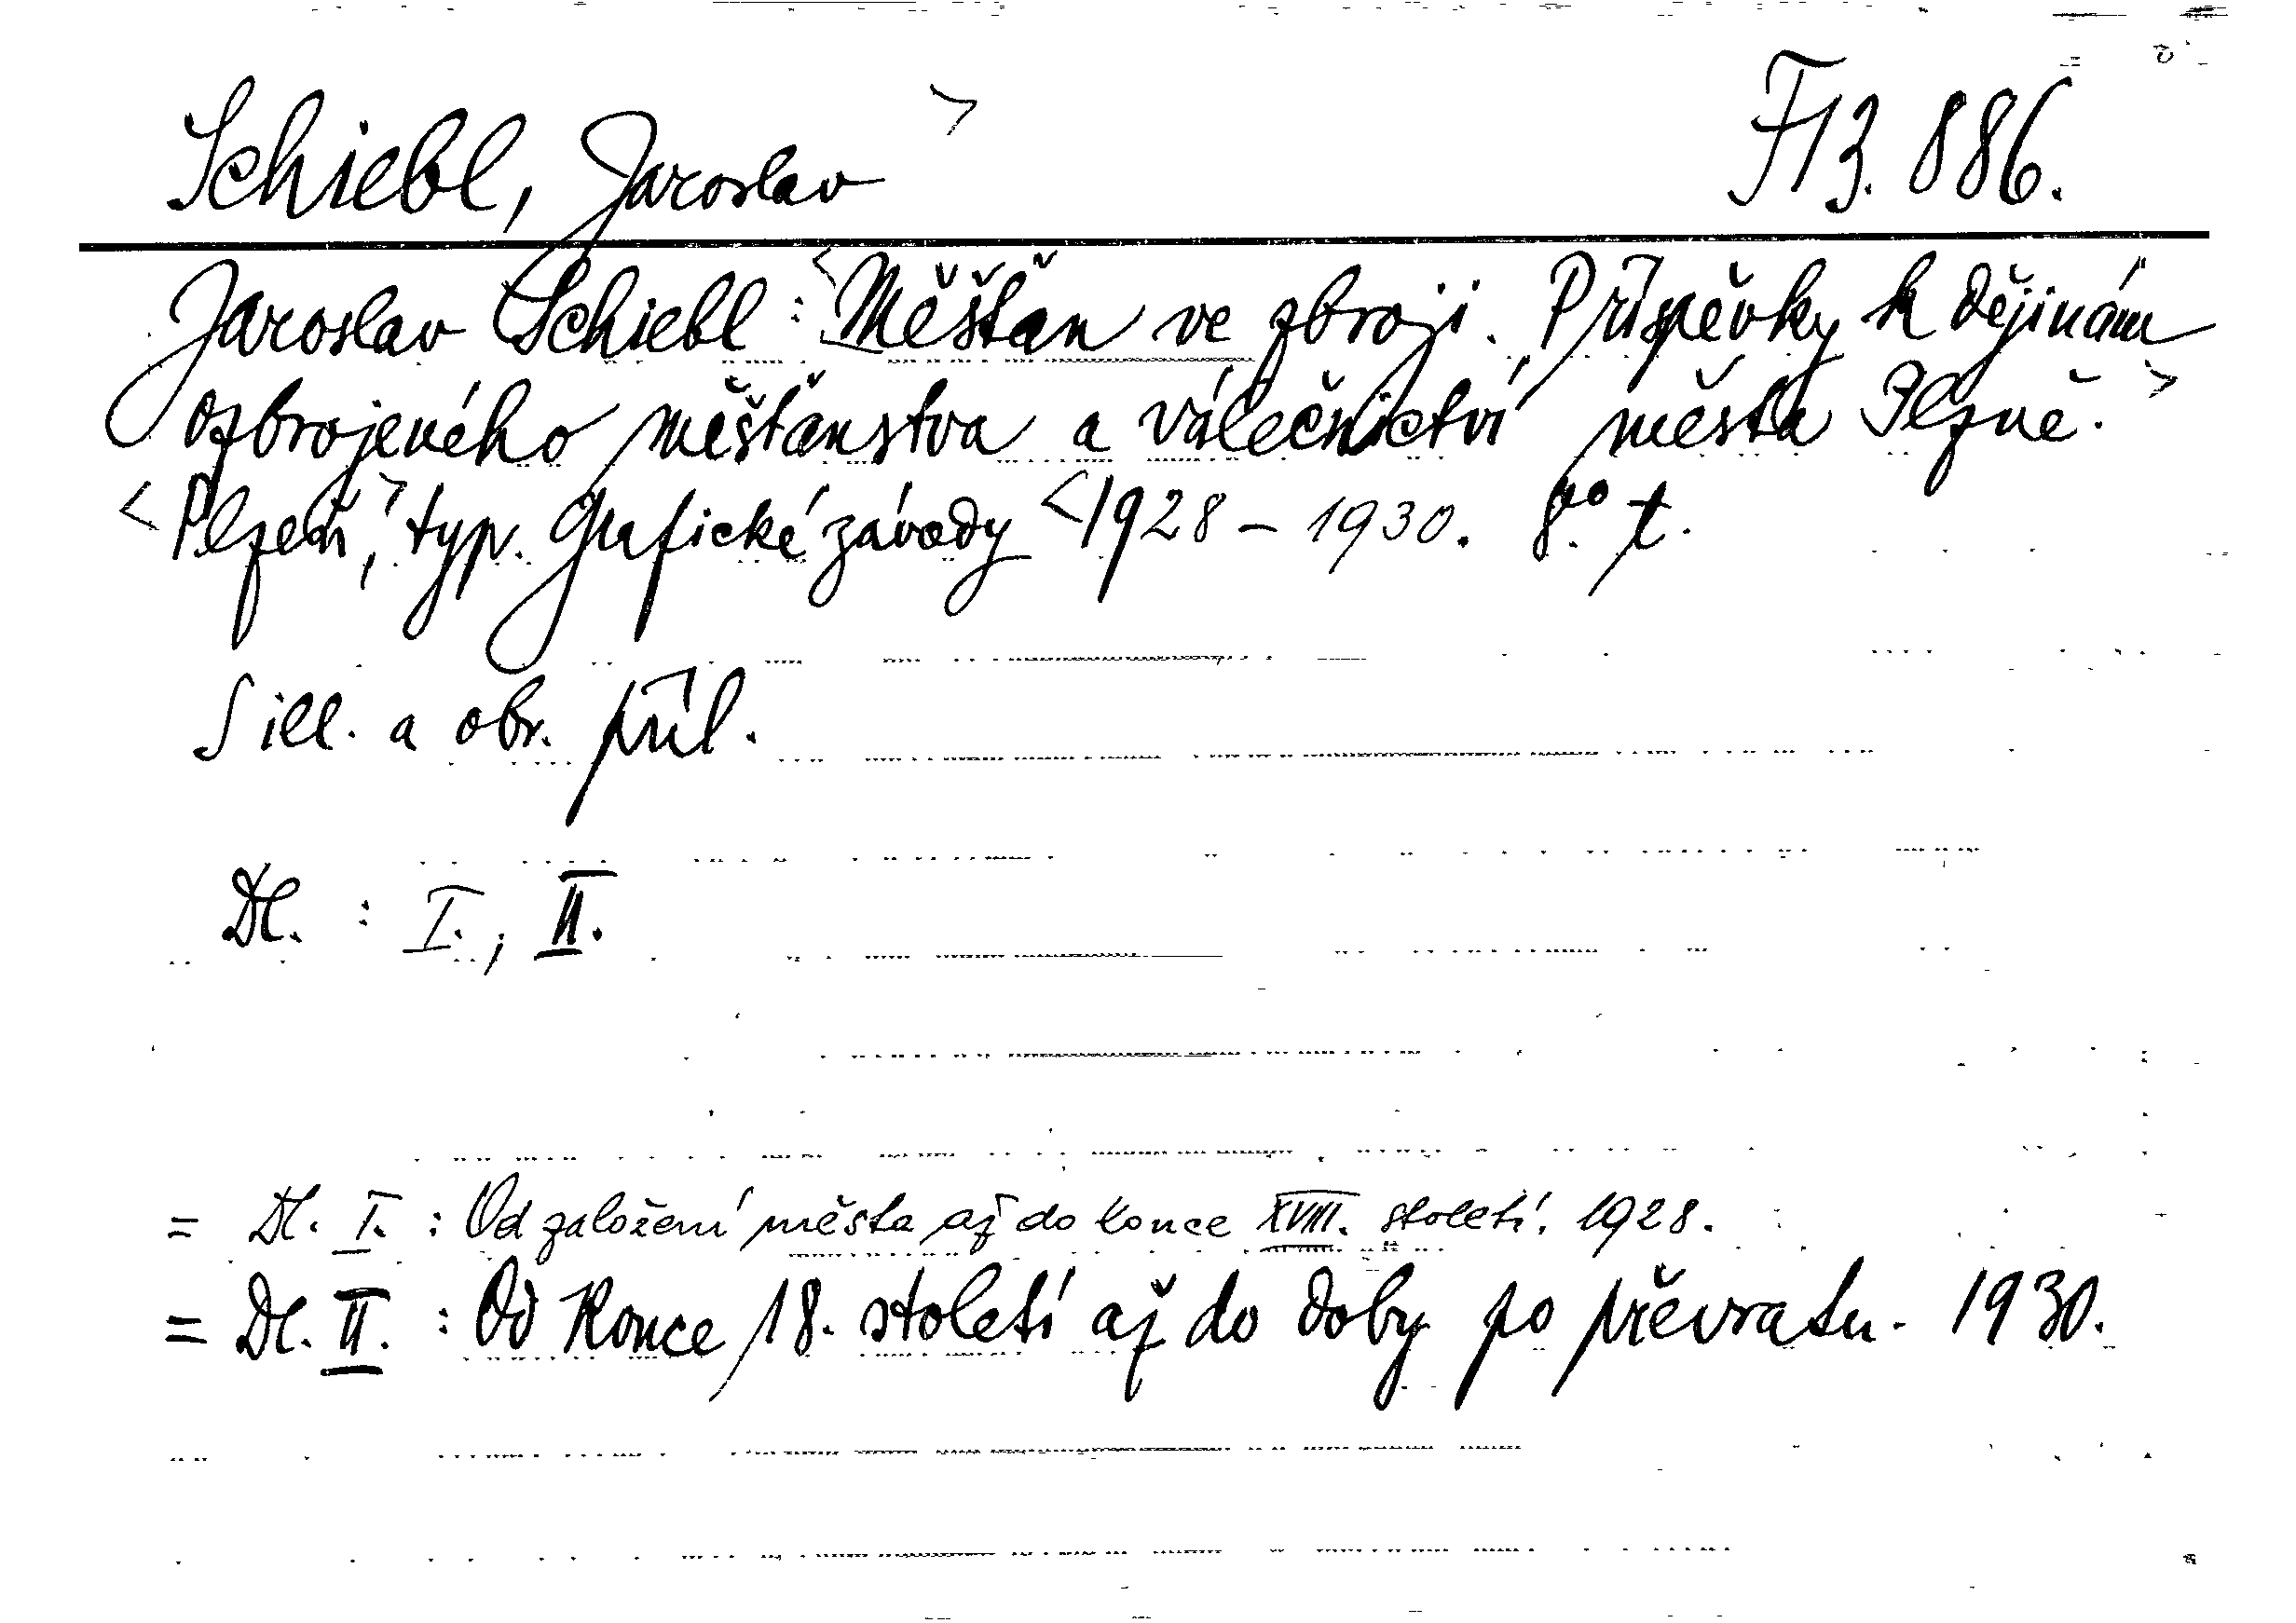 Schiebl, Jaroslav > F 13.886.
Jaroslav Schiebl: <Měšťan ve zbroji. Příspěvky k dějinám
ozbrojeného měšťanstva a válečnictví města Plzně.>
<Plzeň,> typ. Grafické závody <1928 - 1930. 8.° t.
S ill. a obr. příl.
Dl. : I., II.
= Dl. I. : Od založení města až do konce XVIII. století. 1928.
= Dl. II. : Od konce 18. století až do doby po převratu. 1930.